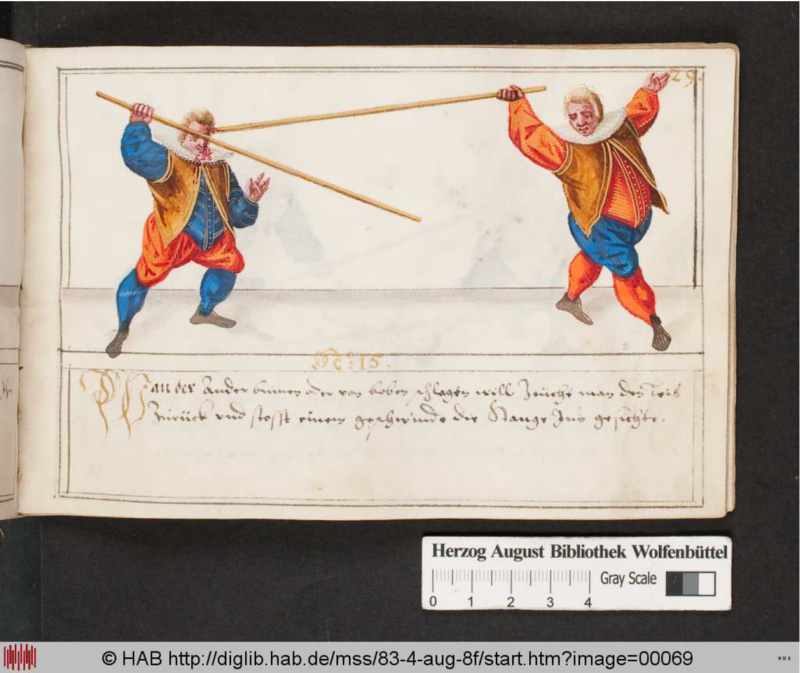 29.
No: 15.
Wan der Ander binnen oder von boben schlagen will Zeuche man den leib
Zurück vnd stosst einem geschwinde die Stange Ins gesichte.
Herzog August Bibliothek Wolfenbüttel
Gray Scale
0 1 2 3 4
© HAB http://diglib.hab.de/mss/83-4-aug-8f/start.htm?image=00069